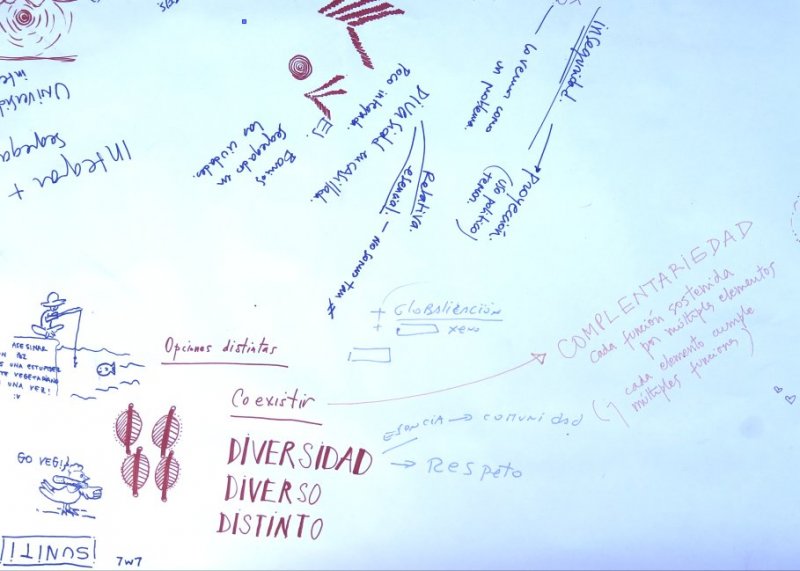 Universid
inte
Integrar +
segrega
Barrios
segregado en
las ciudades.
ES.
Poco integrada.
DIVERSIDAD en castilla.
Relativa.
esencial. - no somos tan ≠
Inseguridad
lo vemos como
un problema.
Proyección.
(uso político)
temor.
+ GLOBALIZACIÓN
+
xeno
COMPLENTARIEDAD
cada función sostenida
por múltiples elementos
(y cada elemento cumple
múltiples funciones)
Opciones distintas
Coexistir
ESENCIA → COMUNIDAD
DIVERSIDAD → Respeto
DIVERSO
DISTINTO
ASESINAR
UN PEZ
ES UNA ESTUPIDEZ
VEGETARIANO
UNA VEZ!
:v
GO VEGI!
SUNITI
7w7